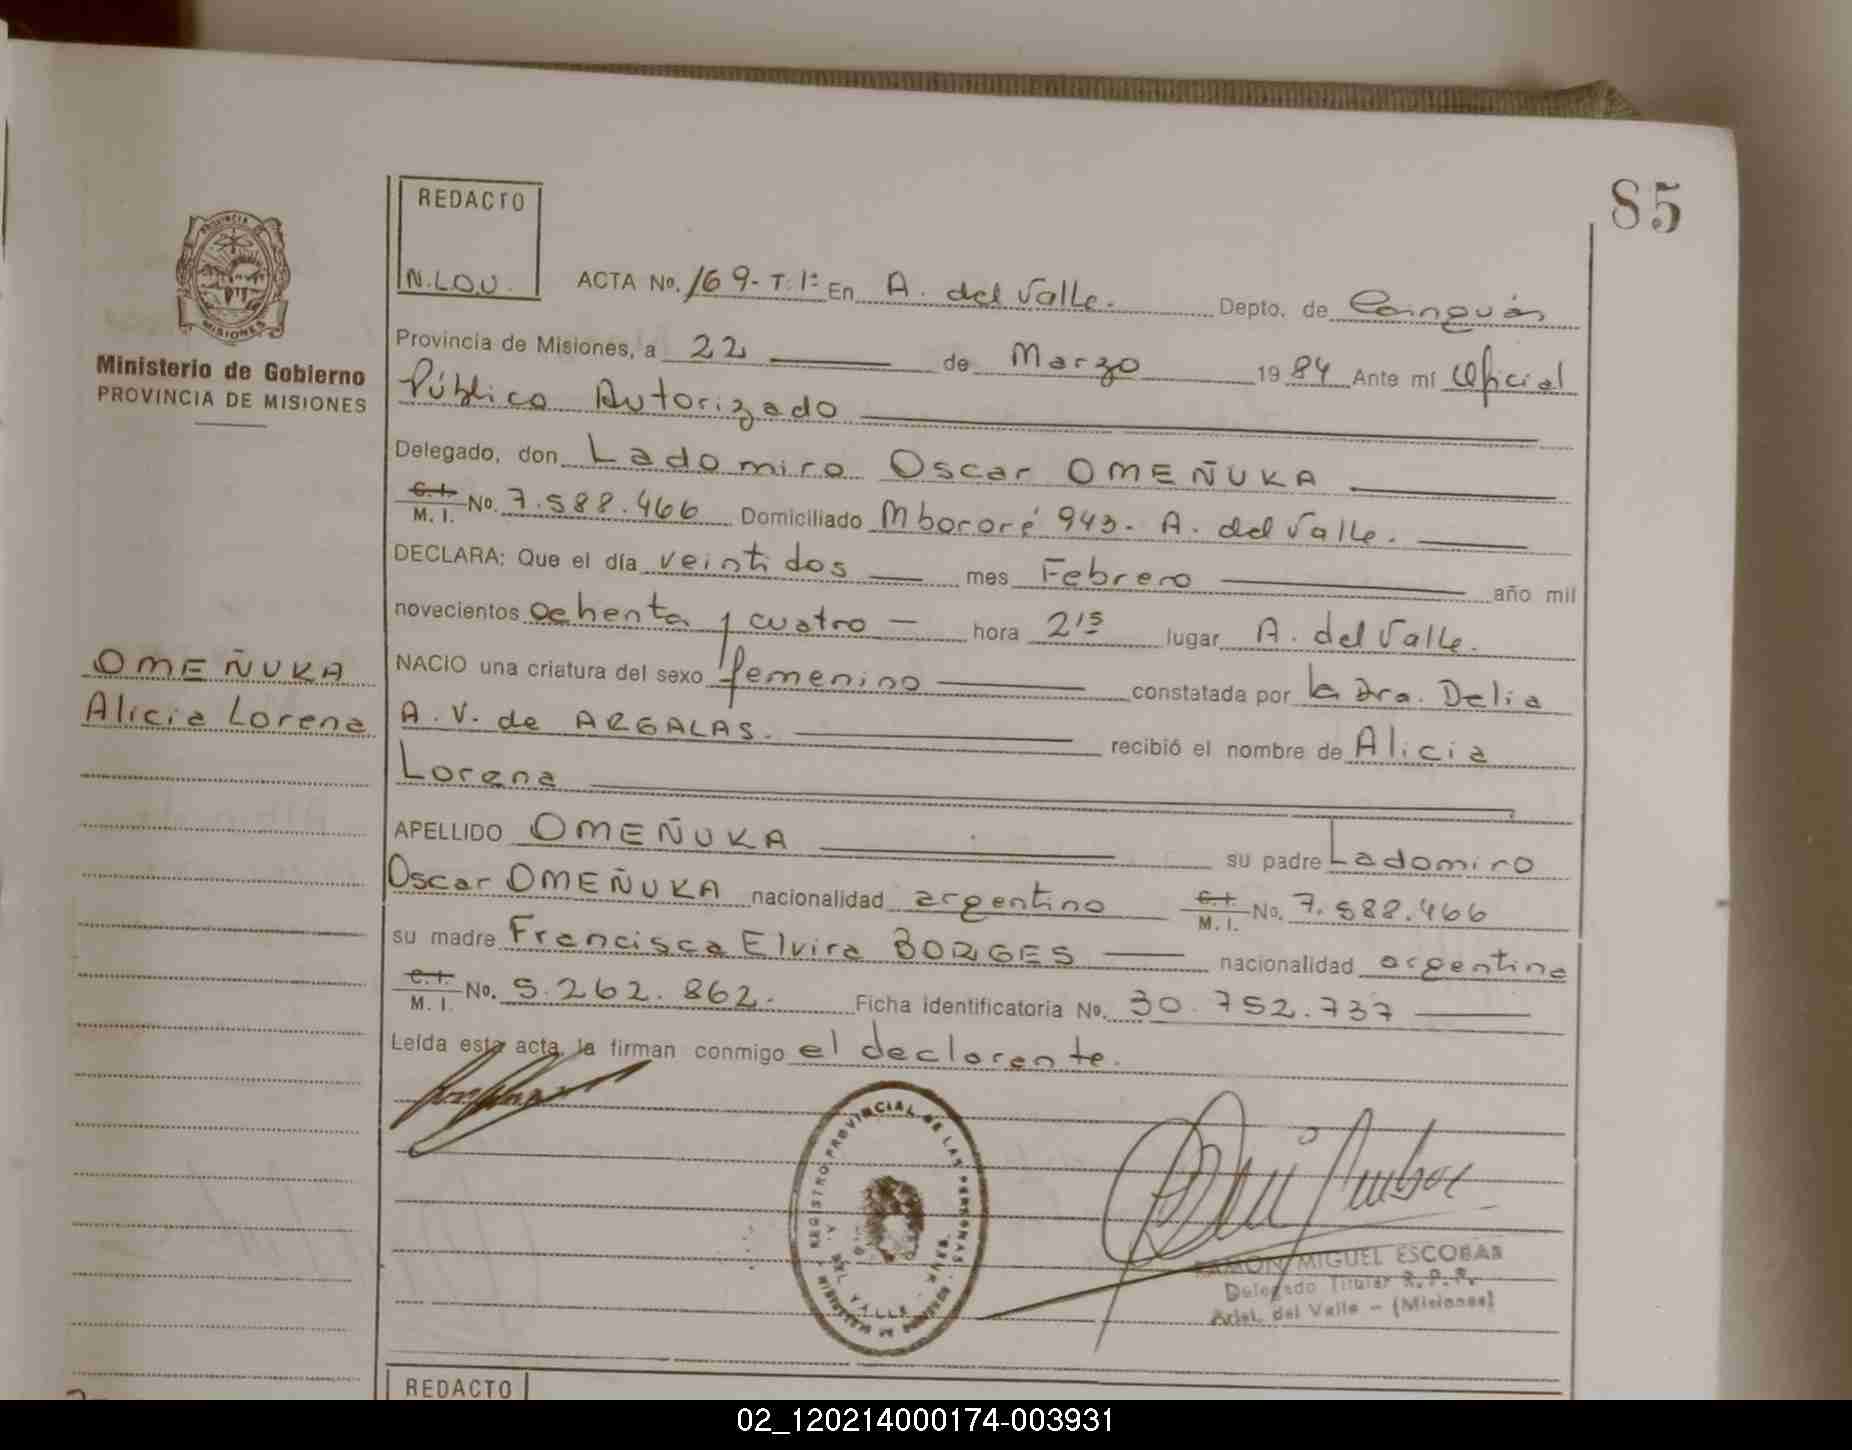 85
REDACTO
N.L.O.U.
ACTA No. 169- T. 1º En A. del Valle. Depto. de Cainguás
Ministerio de Gobierno
PROVINCIA DE MISIONES
Provincia de Misiones, a 22 de Marzo 1984 Ante mí Oficial
Público Autorizado
Delegado, don Ladomiro Oscar OMEÑUKA
C.I. M. I. No. 7.588.466 Domiciliado Mbororé 943- A. del Valle.
DECLARA: Que el día veintidos mes Febrero año mil
novecientos ochenta y cuatro - hora 2,15 lugar A. del Valle.
OMEÑUKA
Alicia Lorena
NACIO una criatura del sexo femenino constatada por la Dra. Delia
A. V. de ARGALAS. recibió el nombre de Alicia
Lorena
APELLIDO OMEÑUKA su padre Ladomiro
Oscar OMEÑUKA nacionalidad argentino C.I. M. I. No. 7.588.466
su madre Francisca Elvira BORGES nacionalidad argentina
C.I. M. I. No. 5.262.862. Ficha identificatoria No. 30.752.737
Leída esta acta, la firman conmigo el declarente.
REGISTRO PROVINCIAL DE LAS PERSONAS
DEL VALLE
RAMON MIGUEL ESCOBAR
Delegado Titular R. P. P.
Arist. del Valle - (Misiones)
REDACTO
02_120214000174-003931